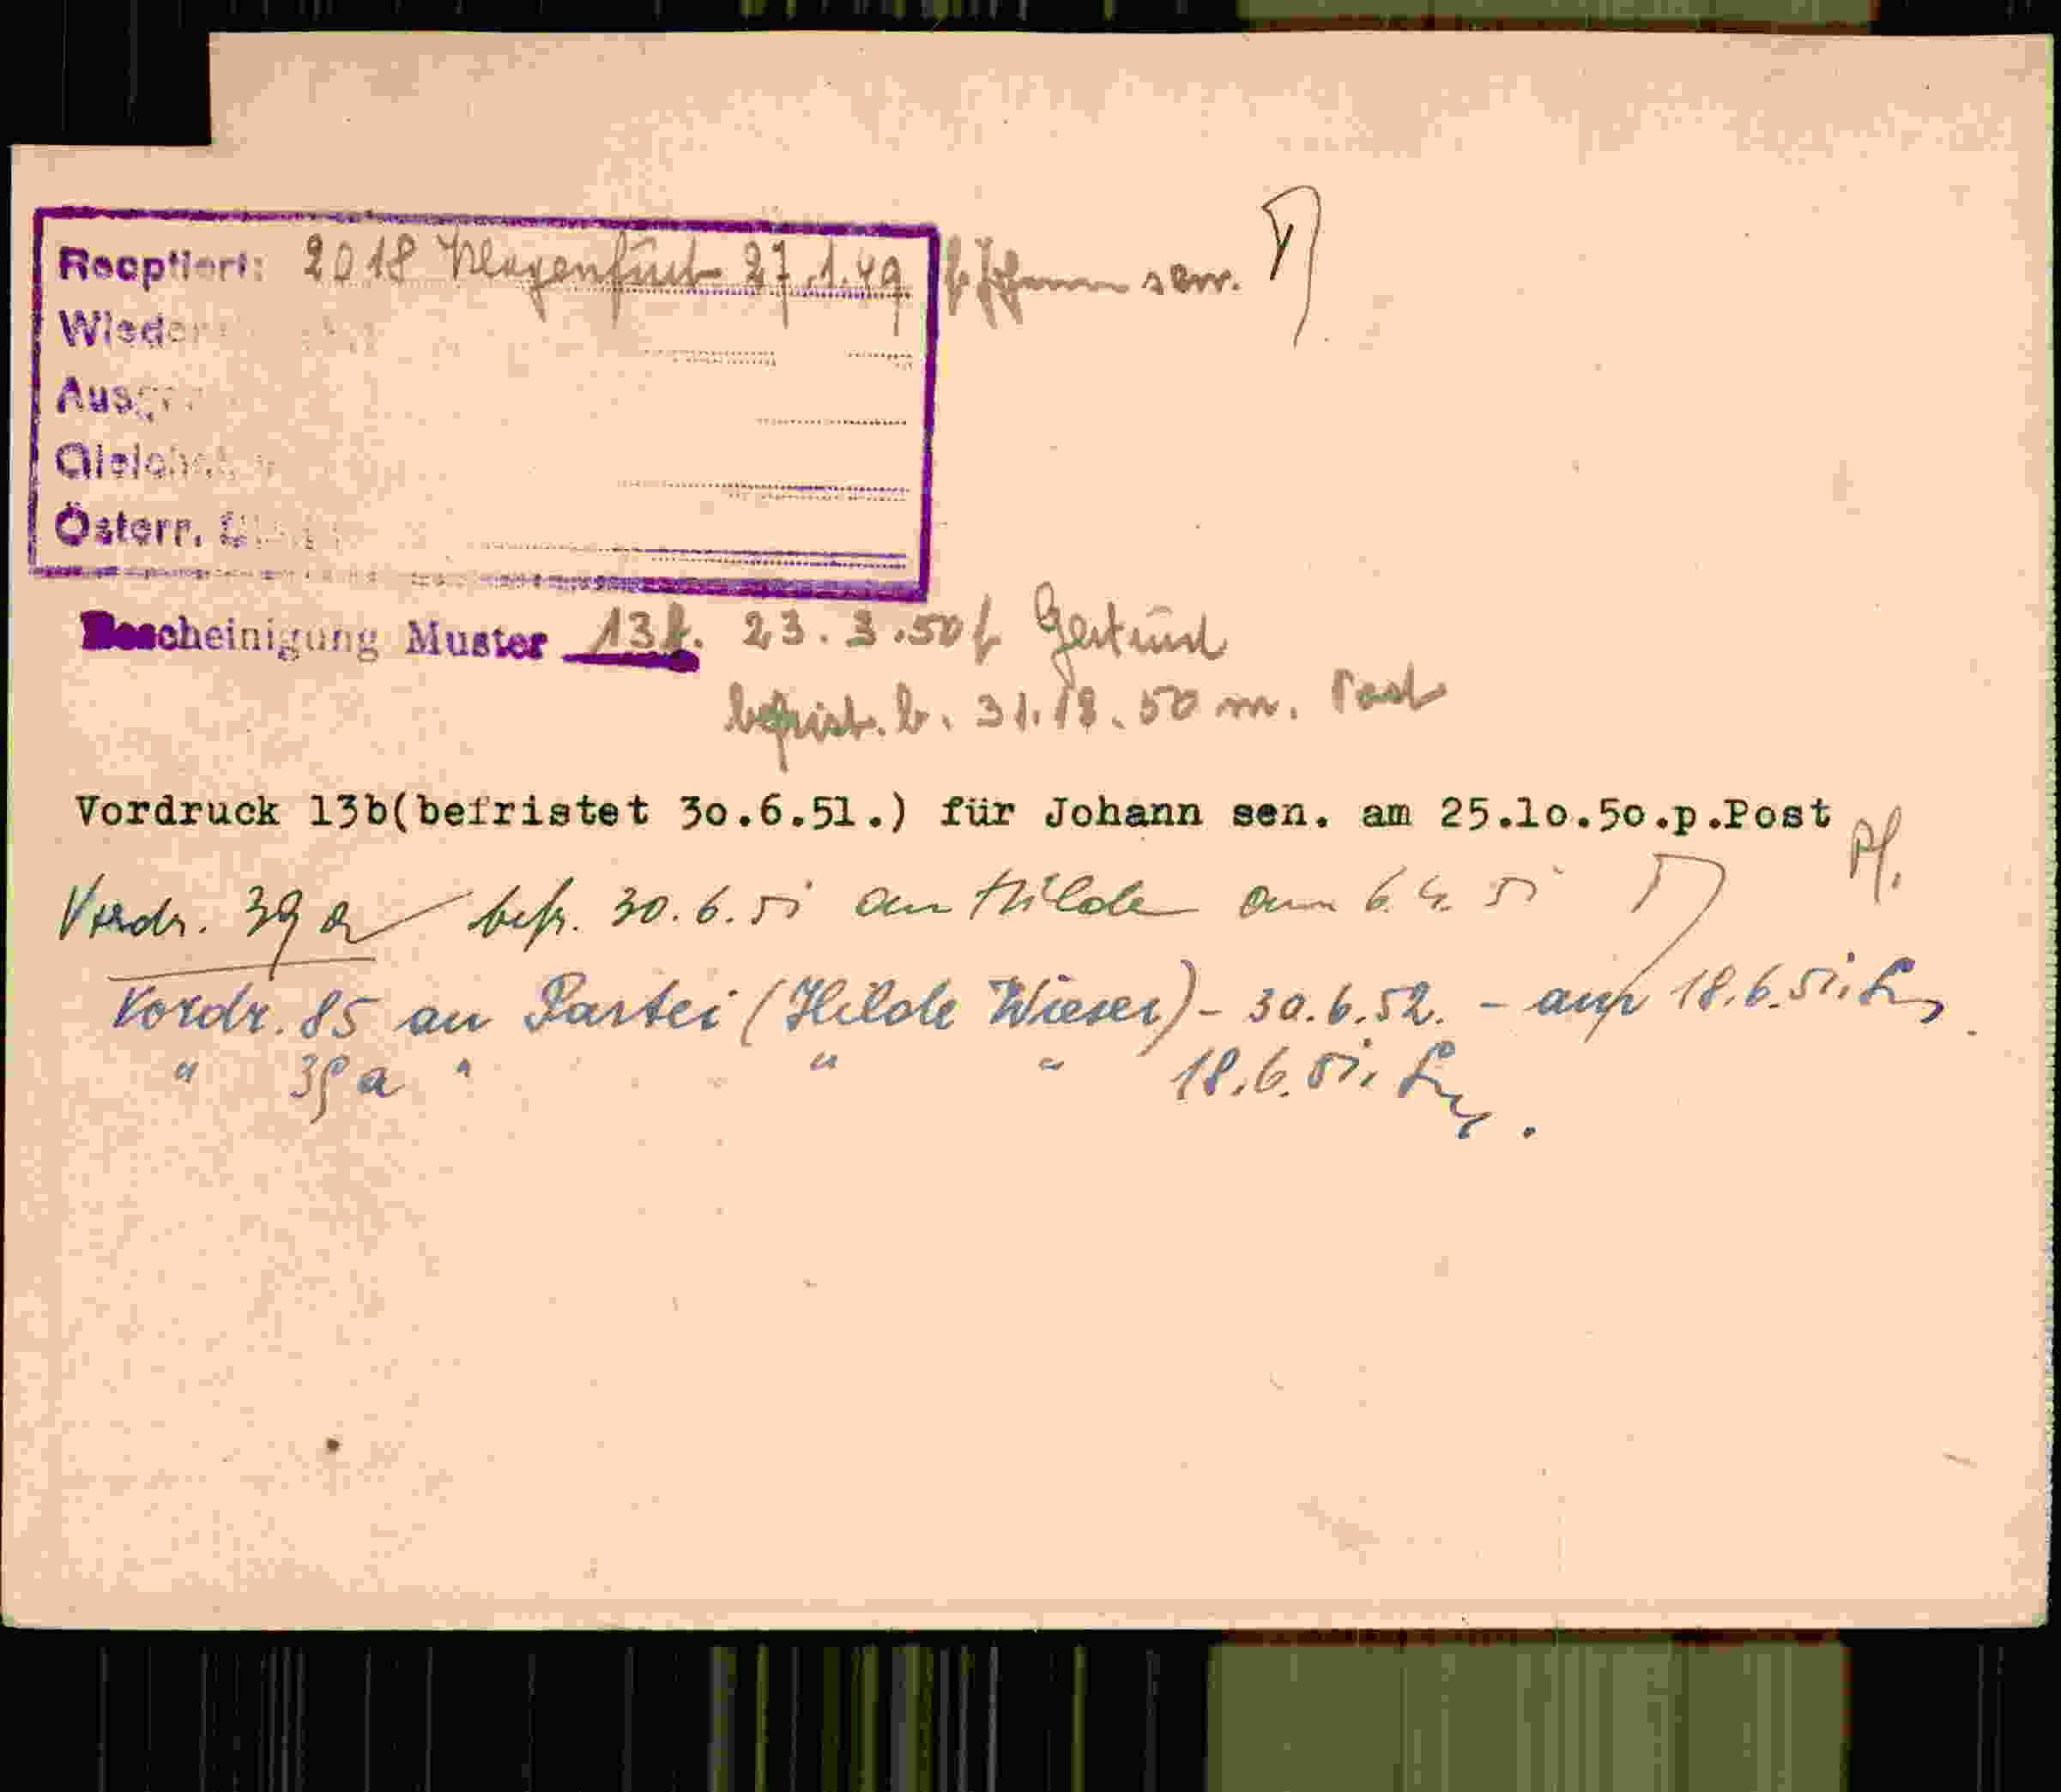 Reoptiert: 2018 Klagenfurt 27.1.49 f. Johann sen.
Österr.
Bescheinigung Muster 13b. 23.3.50 f. Gertrud
befrist. b. 31.12.50 m. Post
Vordruck 13b(befristet 30.6.51.) für Johann sen. am 25.10.50.p.Post
Vordr. 39 a befr. 30.6.51 an Hilde am 6.4.51
Vordr. 85 an Partei (Hilde Wieser) - 30.6.52. - am 18.6.51.
" 39 a " " " 18.6.51.